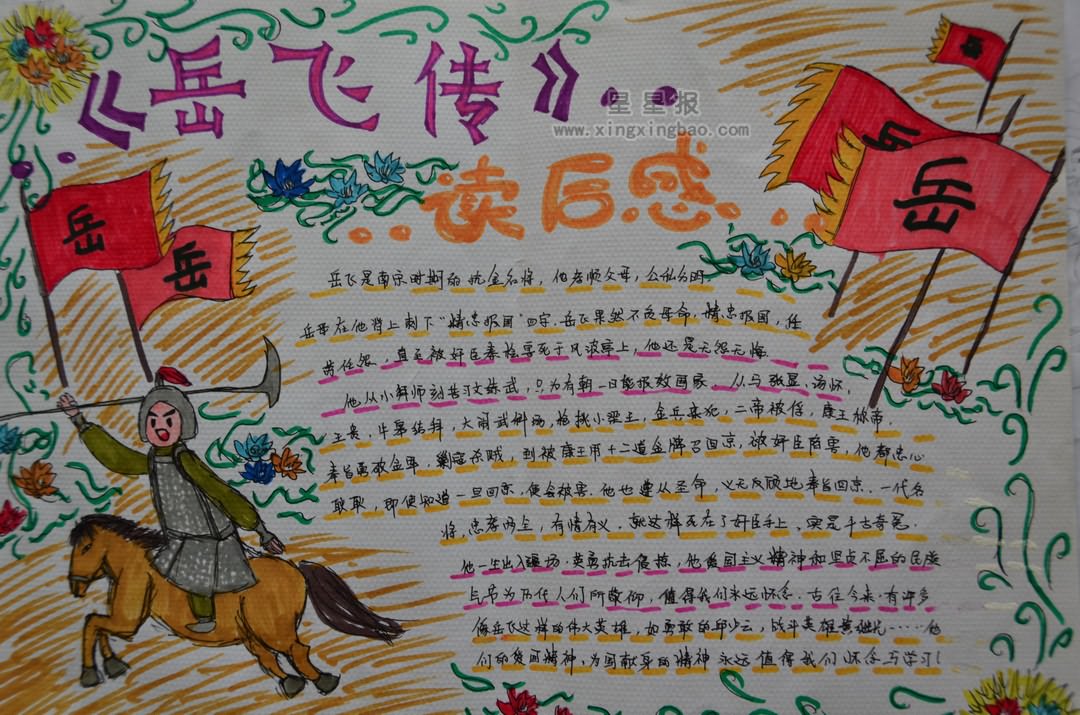 《岳飞传》
星星报
www.xingxingbao.com
读后感
岳
岳
岳
岳
岳
岳飞是南宋时期的抗金名将，他孝顺父母，公私分明。
岳母在他背上刺下“精忠报国”四字.岳飞果然不负母命，精忠报国，任
劳任怨，直至被奸臣秦桧害死于风波亭上，他还是无怨无悔。
他从小拜师刻苦习文练武，只为有朝一日能报效国家。从与张显、汤怀、
王贵、牛皋结拜，大闹武科场，枪挑小梁王，金兵来犯，二帝被俘，康王称帝，
奉旨勇破金军，剿寇杀贼，到被康王用十二道金牌召回京，被奸臣陷害，他都忠心
耿耿，即使知道一旦回京，便会被害.他也遵从圣命，义无反顾地奉旨回京.一代名
将，忠孝两全，有情有义，就这样死在了奸臣手上，实是千古奇冤.
他一生出入疆场.英勇抗击 他爱国主义精神和坚贞不屈的民族
气节为历代人们所敬仰，值得我们永远怀念.古往今来.有许多
像岳飞这样的伟大英雄，如勇敢的邱少云，战斗英雄黄继光……他
们的爱国精神，为国献身的精神永远值得我们怀念与学习！